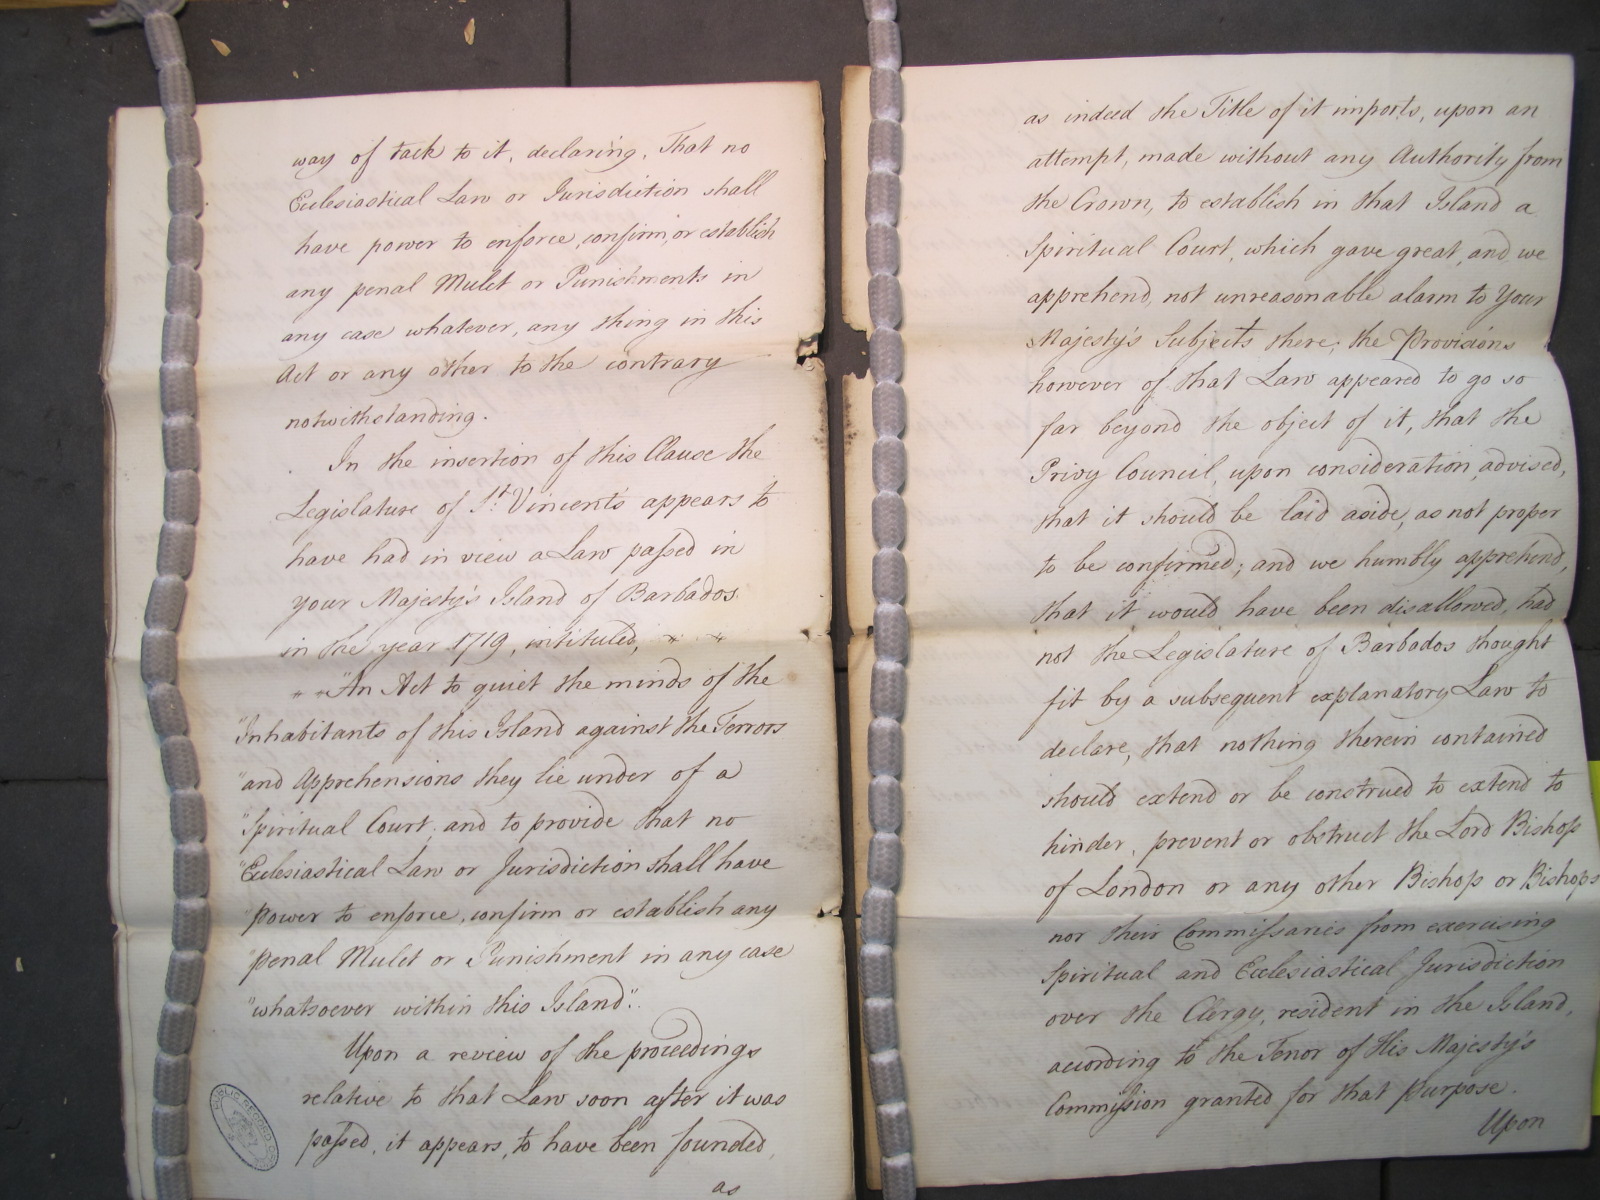 way of tack to it, declaring, That no
Ecclesiastical Law or Jurisdiction shall
have power to enforce, confirm, or establish
any penal Mulct or Punishments in
any case whatever, any thing in this
Act or any other to the contrary
notwithstanding.
In the insertion of this Clause the
Legislature of St. Vincent's appears to
have had in view a Law passed in
your Majesty's Island of Barbados
in the year 1719, intituled,
"An Act to quiet the minds of the
"Inhabitants of this Island against the Terrors
"and Apprehensions they lie under of a
"Spiritual Court, and to provide that no
"Ecclesiastical Law or Jurisdiction shall have
"power to enforce, confirm or establish any
"penal Mulct or Punishment in any case
"whatsoever within this Island".
Upon a review of the proceedings
relative to that Law soon after it was
passed, it appears, to have been founded,
as
PUBLIC RECORD OFFICE
as indeed the Title of it imports, upon an
attempt, made without any Authority from
the Crown, to establish in that Island a
Spiritual Court, which gave great, and we
apprehend, not unreasonable alarm to Your
Majesty's Subjects there; the Provisions
however of that Law appeared to go so
far beyond the object of it, that the
Privy Council, upon consideration, advised,
that it should be laid aside, as not proper
to be confirmed; and we humbly apprehend,
that it would have been disallowed, had
not the Legislature of Barbados thought
fit by a subsequent explanatory Law to
declare, that nothing therein contained
should extend or be construed to extend to
hinder, prevent or obstruct the Lord Bishop
of London or any other Bishop or Bishops
nor their Commissaries from exercising
Spiritual and Ecclesiastical Jurisdiction
over the Clergy, resident in the Island,
according to the Tenor of His Majesty's
Commission granted for that purpose.
Upon